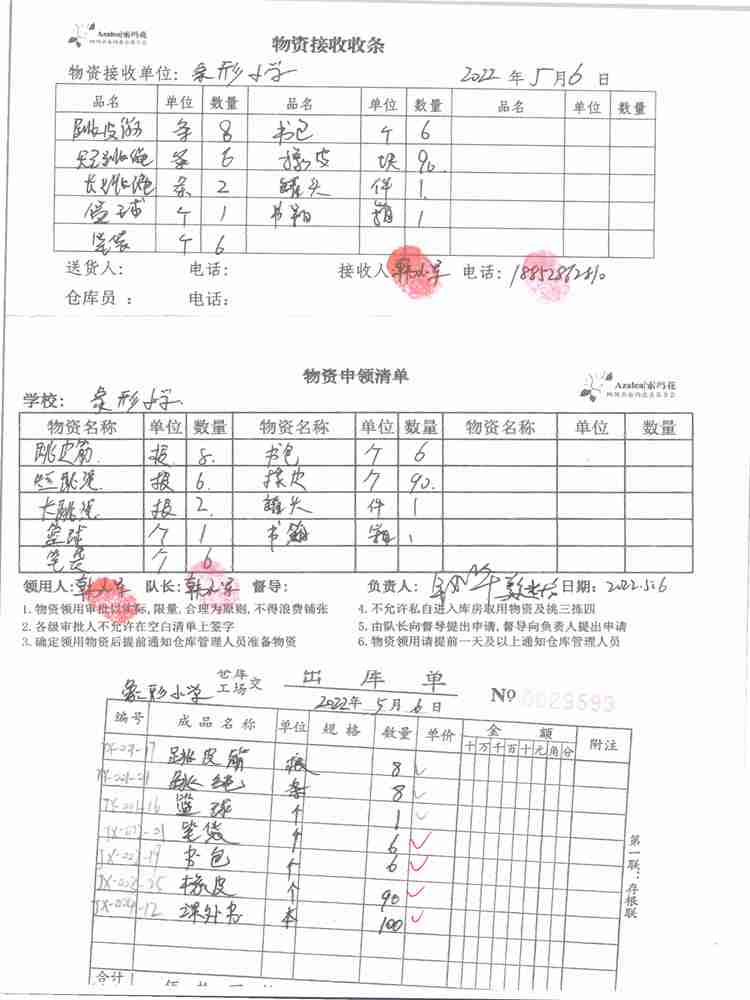 Azalea|索玛花
物资接收收条
物资接收单位: 象形小学 2022 年 5 月 6 日
品名 单位 数量 品名 单位 数量 品名 单位 数量
跳皮筋 条 8 书包 个 6
短跳绳 条 6 橡皮 块 90
长跳绳 条 2 罐头 件 1
篮球 个 1 书箱 箱 1
笔袋 个 6
送货人: 电话: 接收人 韩 电话: 18852862810
仓库员 : 电话:
物资申领清单
Azalea|索玛花
学校: 象形小学
物资名称 单位 数量 物资名称 单位 数量 物资名称 单位 数量
跳皮筋 根 8. 书包 个 6
短跳绳 根 6. 橡皮 个 90.
长跳绳 根 2. 罐头 件 1
篮球 个 1 书箱 箱 1
笔袋 个 6
领用人: 韩 队长: 韩 督导: 负责人: 日期: 2022.5.6
1. 物资领用审批以实际, 限量, 合理为原则, 不得浪费铺张 4. 不允许私自进入库房取用物资及挑三拣四
2. 各级审批人不允许在空白清单上签字 5. 由队长向督导提出申请, 督导向负责人提出申请
3. 确定领用物资后提前通知仓库管理人员准备物资 6. 物资领用请提前一天及以上通知仓库管理人员
象形小学 仓库 工场 交 出 库 单
2022年 5 月 6 日 № 0029593
编号 成品名称 单位 规格 数量 单价 金额 附注
十万千百十元角分
跳皮筋 根 8
跳绳 条 8
篮球 个 1
笔袋 个 6
书包 个 6
橡皮 个 90
课外书 本 100
合计
第一联：存根联